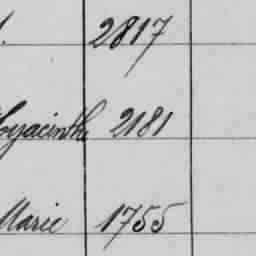 2817
Hyacinthe 2181
Marie 1755